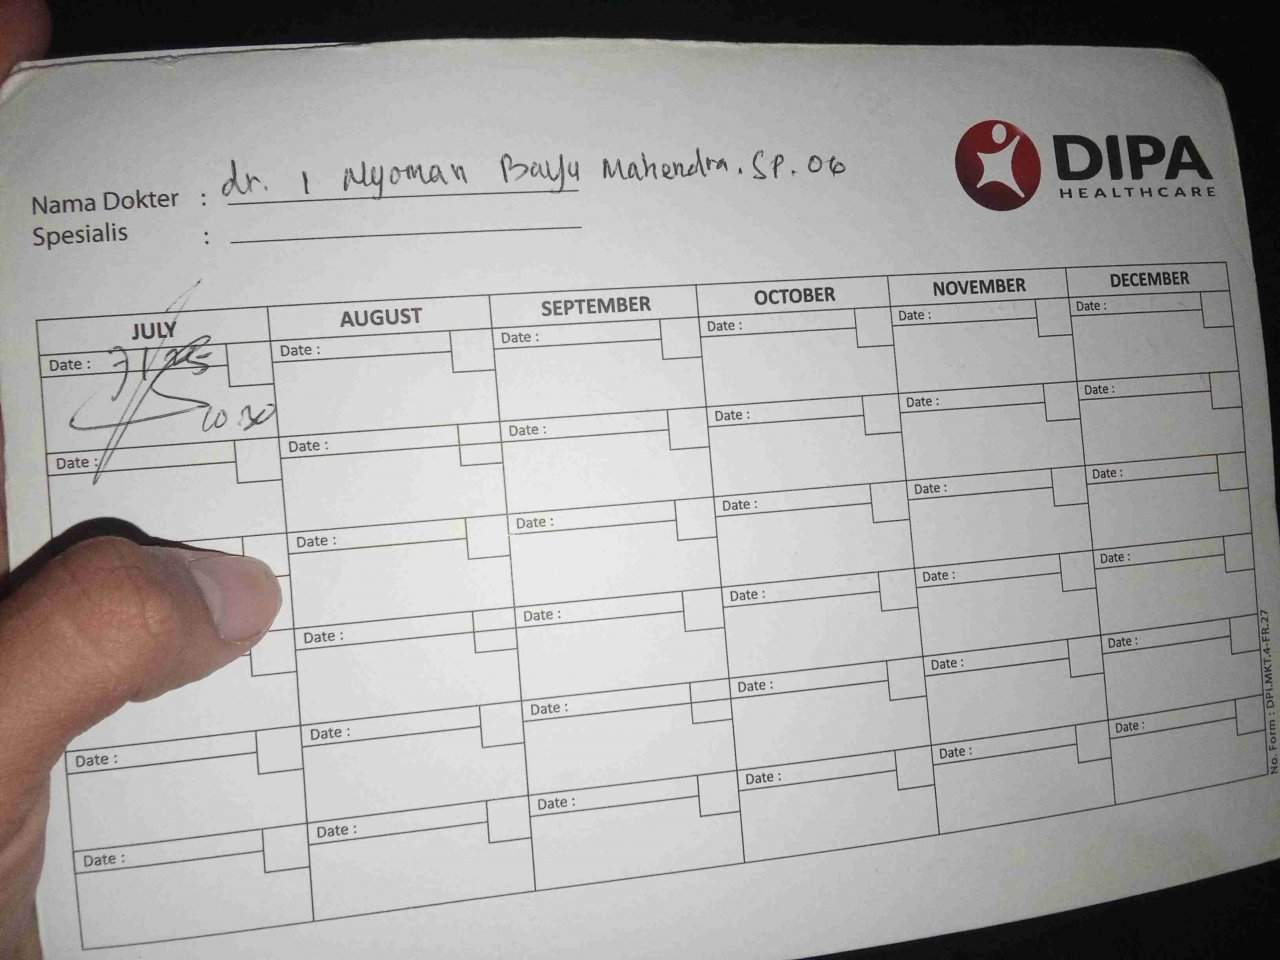 DIPA
HEALTHCARE
Nama Dokter : dr. I Nyoman Bayu Mahendra. SP. OG
Spesialis :
JULY AUGUST SEPTEMBER OCTOBER NOVEMBER DECEMBER
Date : Date : Date : Date : Date : Date :
10.30
Date : Date : Date : Date : Date : Date :
Date : Date : Date : Date : Date :
Date : Date : Date : Date : Date :
Date : Date : Date : Date : Date : Date :
Date : Date : Date : Date : Date : Date :
No. Form : DPI.MKT.4-FR.27